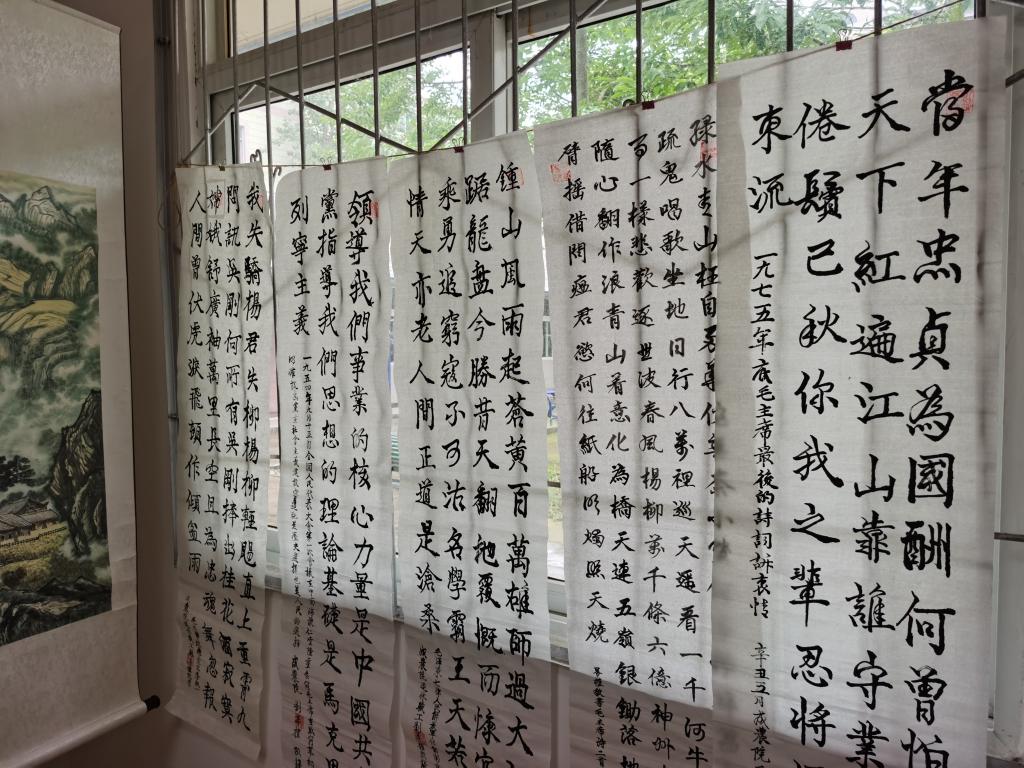 當年忠貞為國酬何曾怕
天下紅遍江山靠誰守業
倦鬢已秋你我之輩忍將
東流
一九七五年底毛主席最後的詩詞訴衷情
辛丑五月成農院
綠水青山枉自
疏鬼唱歌坐地日行八萬裡巡天遥看一千河牛
一樣悲歡逐世波春風楊柳萬千條六億神州
隨心翻作浪青山着意化為橋天連五嶺銀鋤落地
臂搖借問瘟君慾何往紙船明燭照天燒
鍾山風雨起蒼黄百萬雄師過大
踞龍盘今勝昔天翻地覆慨而慷宜
乘勇追窮寇不可沽名學霸王天若
情天亦老人間正道是滄桑
領導我們事業的核心力量是中國共
黨指導我們思想的理論基礎是馬克思
列寧主義
我失驕楊君失柳楊柳輕颺直上重霄九
問訊吳剛何所有吳剛捧出桂花酒寂寞
嫦娥舒廣袖萬里長空且為忠魂舞忽報
人間曾伏虎淚飛頓作傾盆雨